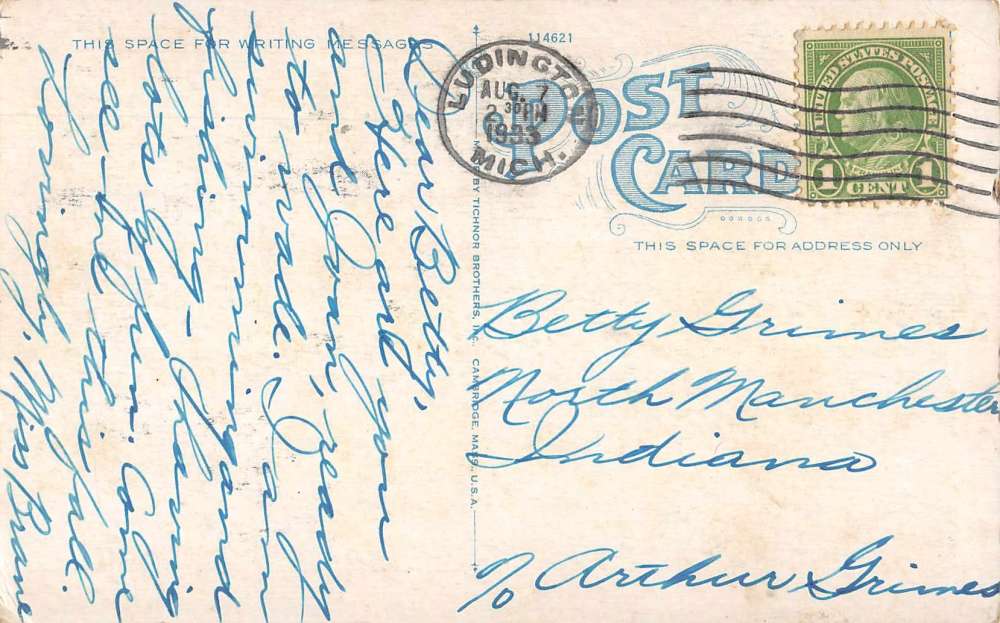 THIS SPACE FOR WRITING MESSAGES
114621
POST
CARD
THIS SPACE FOR ADDRESS ONLY
LUDINGTON
AUG. 7
2 30 PM
1933
MICH.
UNITED STATES POSTAGE
1 CENT 1
BY TICHNOR BROTHERS, INC., CAMBRIDGE, MASS., U.S.A.
Dear Betty,
Here are you
and Joan, ready
to wade. I am
swimming and
fishing - having
lots of fun. Come
see me this fall.
Lovingly, Miss
Betty Grimes
North Manchester
Indiana
% Arthur Grimes